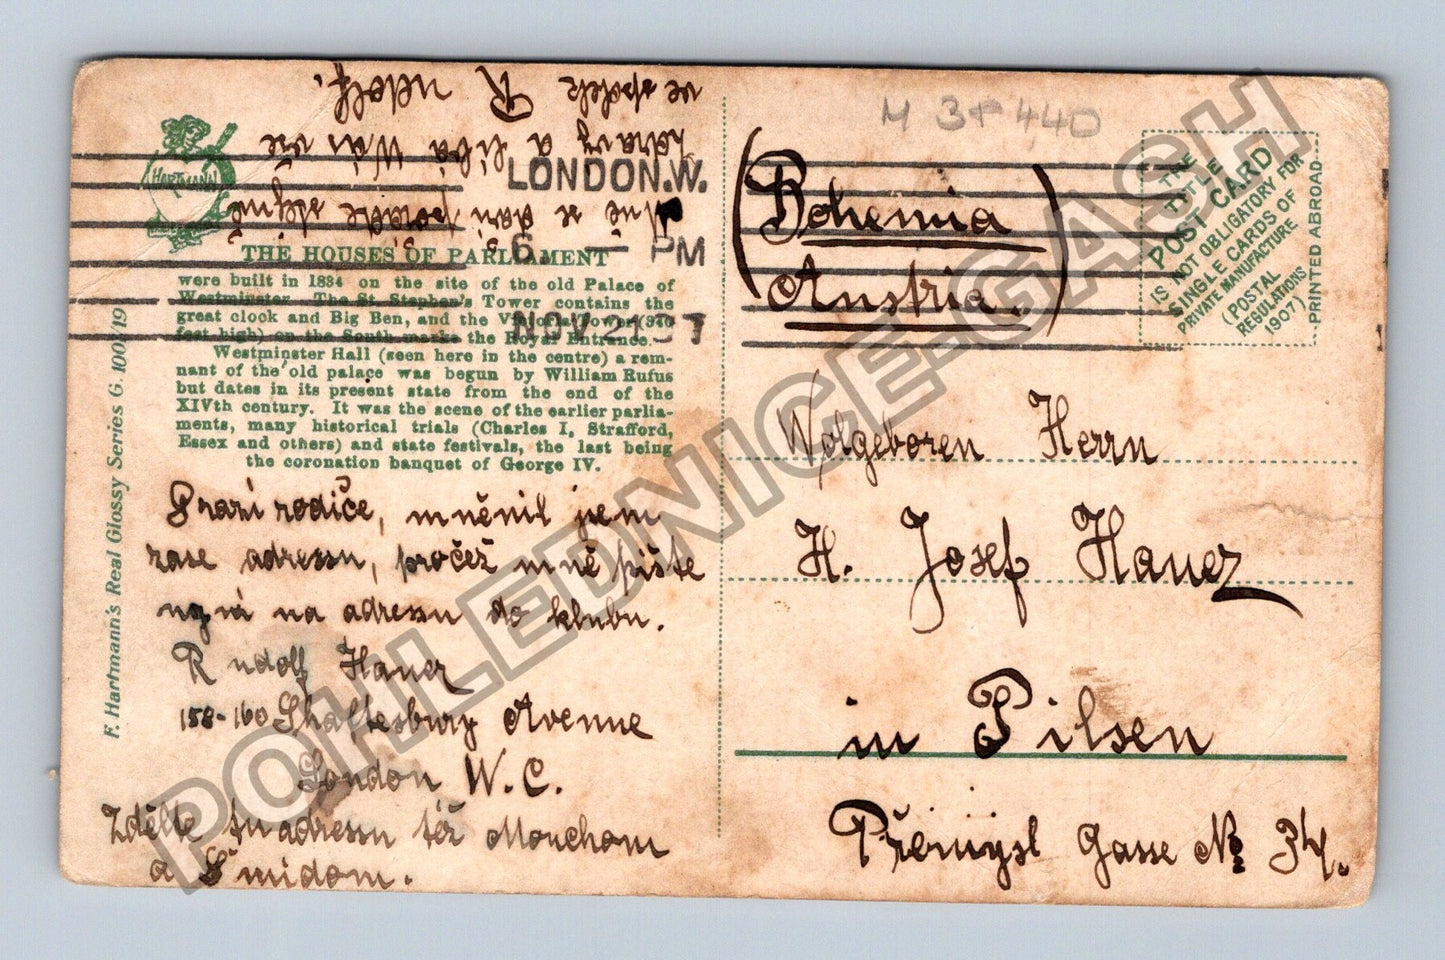 M 38 440
LONDON.W.
6 — PM
NOV 21 07
Mně se daří pořádně stejně
zdravý a líbá Wás vše
ve spolek Rudolf.
HARTMANN
THE HOUSES OF PARLIAMENT
were built in 1834 on the site of the old Palace of
Westminster. The St. Stephen's Tower contains the
great clock and Big Ben, and the Victoria Tower (340
feet high) on the South marks the Royal Entrance.
Westminster Hall (seen here in the centre) a rem-
nant of the old palace was begun by William Rufus
but dates in its present state from the end of the
XIVth century. It was the scene of the earlier parlia-
ments, many historical trials (Charles I, Strafford,
Essex and others) and state festivals, the last being
the coronation banquet of George IV.
F. Hartmann's Real Glossy Series G. 1003/19
Drazí rodiče, měnil jsem
zase adressu, pročež mně pište
nyní na adressu do klubu.
Rudolf Hauer
158-160 Shaftesbury Avenue
London W.C.
Zdělte tu adressu též Mouchom
a Šmidom.
(Bohemia
Austria.)
THE
TITLE
POST CARD
IS NOT OBLIGATORY FOR
SINGLE CARDS OF
PRIVATE MANUFACTURE
(POSTAL
REGULATIONS
1907)
PRINTED ABROAD
Wolgeboren Herrn
H. Josef Hauer
in Pilsen
Přemysl Gasse No 34.
POHLEDNICE-GASH